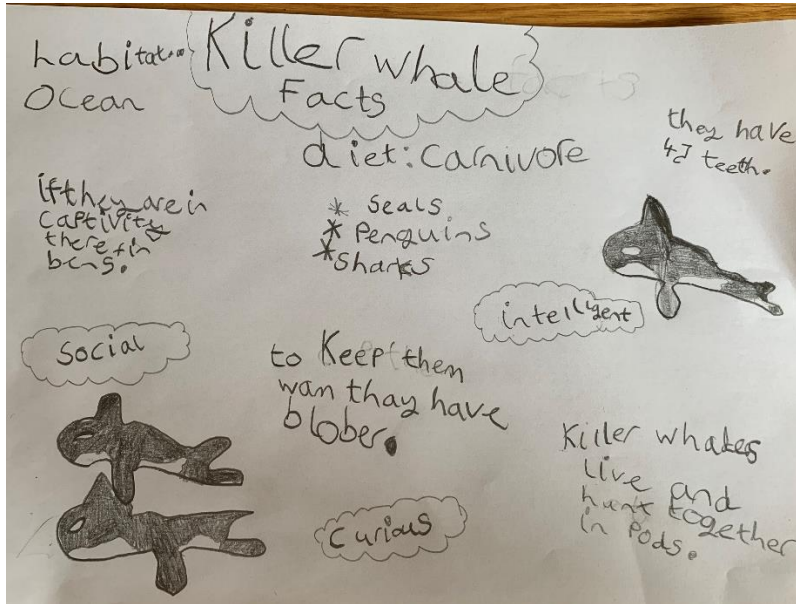 habitat...
Ocean
Killer whale
Facts
they have
diet: Carnivore
if they are in
captivity
there fin
bens.
* Seals
* Penguins
* Sharks
teeth.
intelligent
Social
to Keep them
wam thay have
blober.
Killer whales
live and
hunt together
in Pods.
Curious